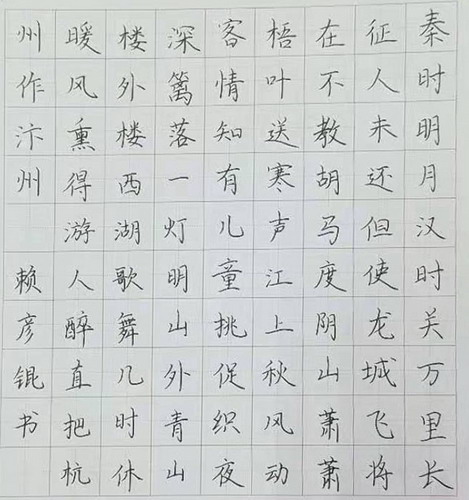 秦时明月汉时关万里长
征人未还但使龙城飞将
在不教胡马度阴山萧萧
梧叶送寒声江上秋风动
客情知有儿童挑促织夜
深篱落一灯明山外青山
楼外楼西湖歌舞几时休
暖风熏得游人醉直把杭
州作汴州 赖彦锟书